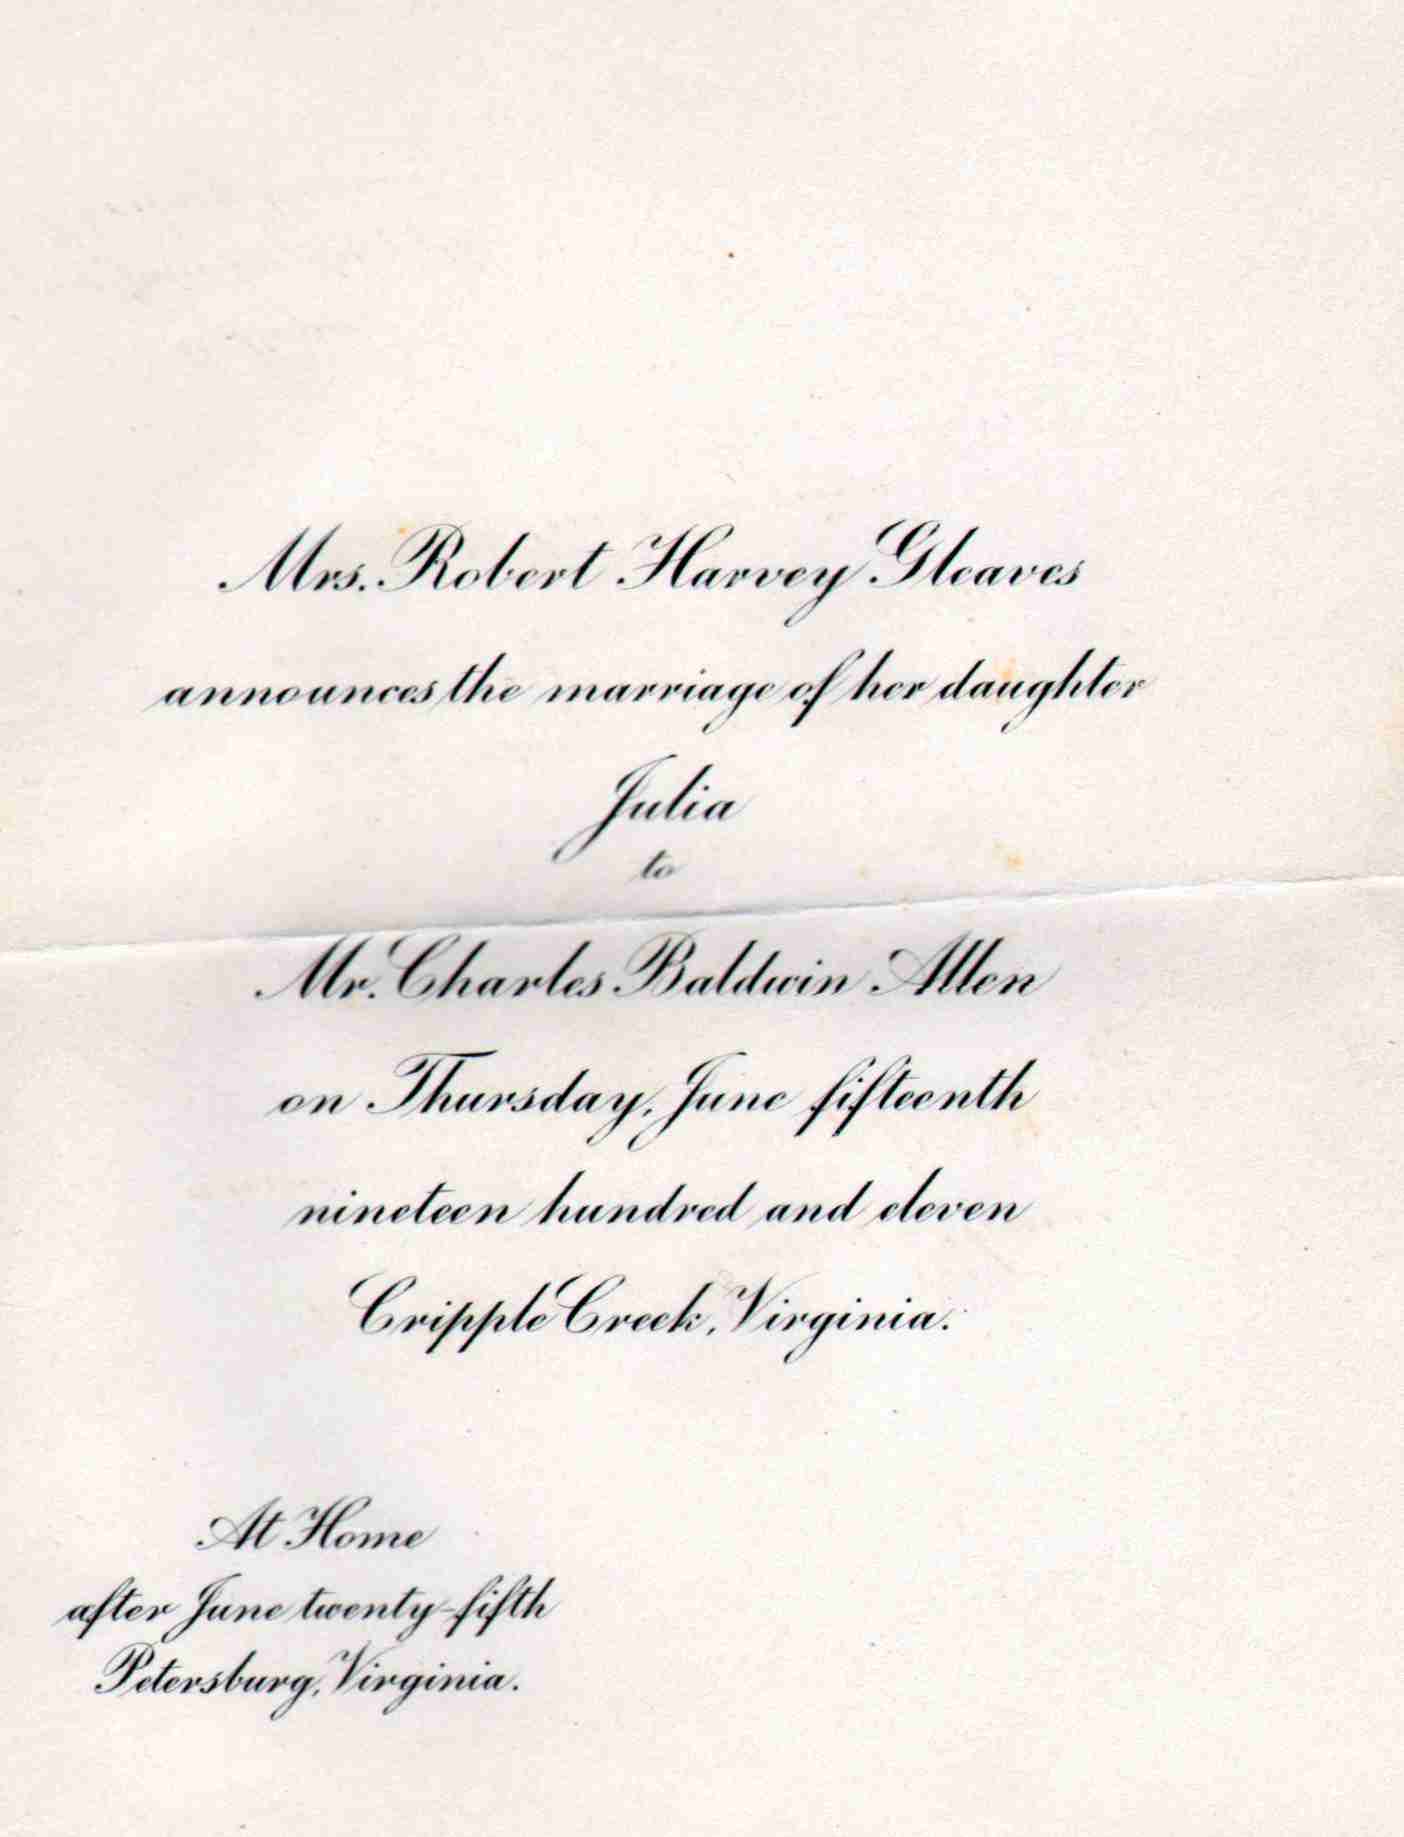 Mrs. Robert Harvey Gleaves
announces the marriage of her daughter
Julia
to
Mr. Charles Baldwin Allen
on Thursday, June fifteenth
nineteen hundred and eleven
Cripple Creek, Virginia.
At Home
after June twenty-fifth
Petersburg, Virginia.